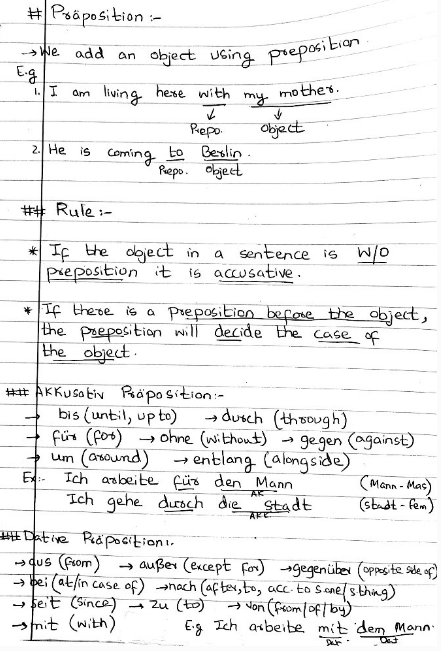 # Präposition :-
→ We add an object using preposition.
E.g
1. I am living here with my mother.
Prepo. Object
2. He is coming to Berlin.
Prepo. Object
## Rule :-
* If the object in a sentence is W/O
preposition it is accusative.
* If there is a preposition before the object,
the preposition will decide the case of
the object.
## AKKusativ Präposition:-
→ bis (until, up to) → durch (through)
→ für (for) → ohne (without) → gegen (against)
→ um (around) → entlang (alongside)
Ex:- Ich arbeite für den Mann (Mann-Mas)
AK
Ich gehe durch die Stadt (Stadt-fem)
AKK
## Dative Präposition:.
→ aus (from) → außer (except for) → gegenüber (opposite side of)
→ bei (at/in case of) → nach (after, to, acc. to s.one/s.thing)
→ seit (since) → zu (to) → von (from/of/by)
→ mit (with) E.g Ich arbeite mit dem Mann.
Dat. Dat